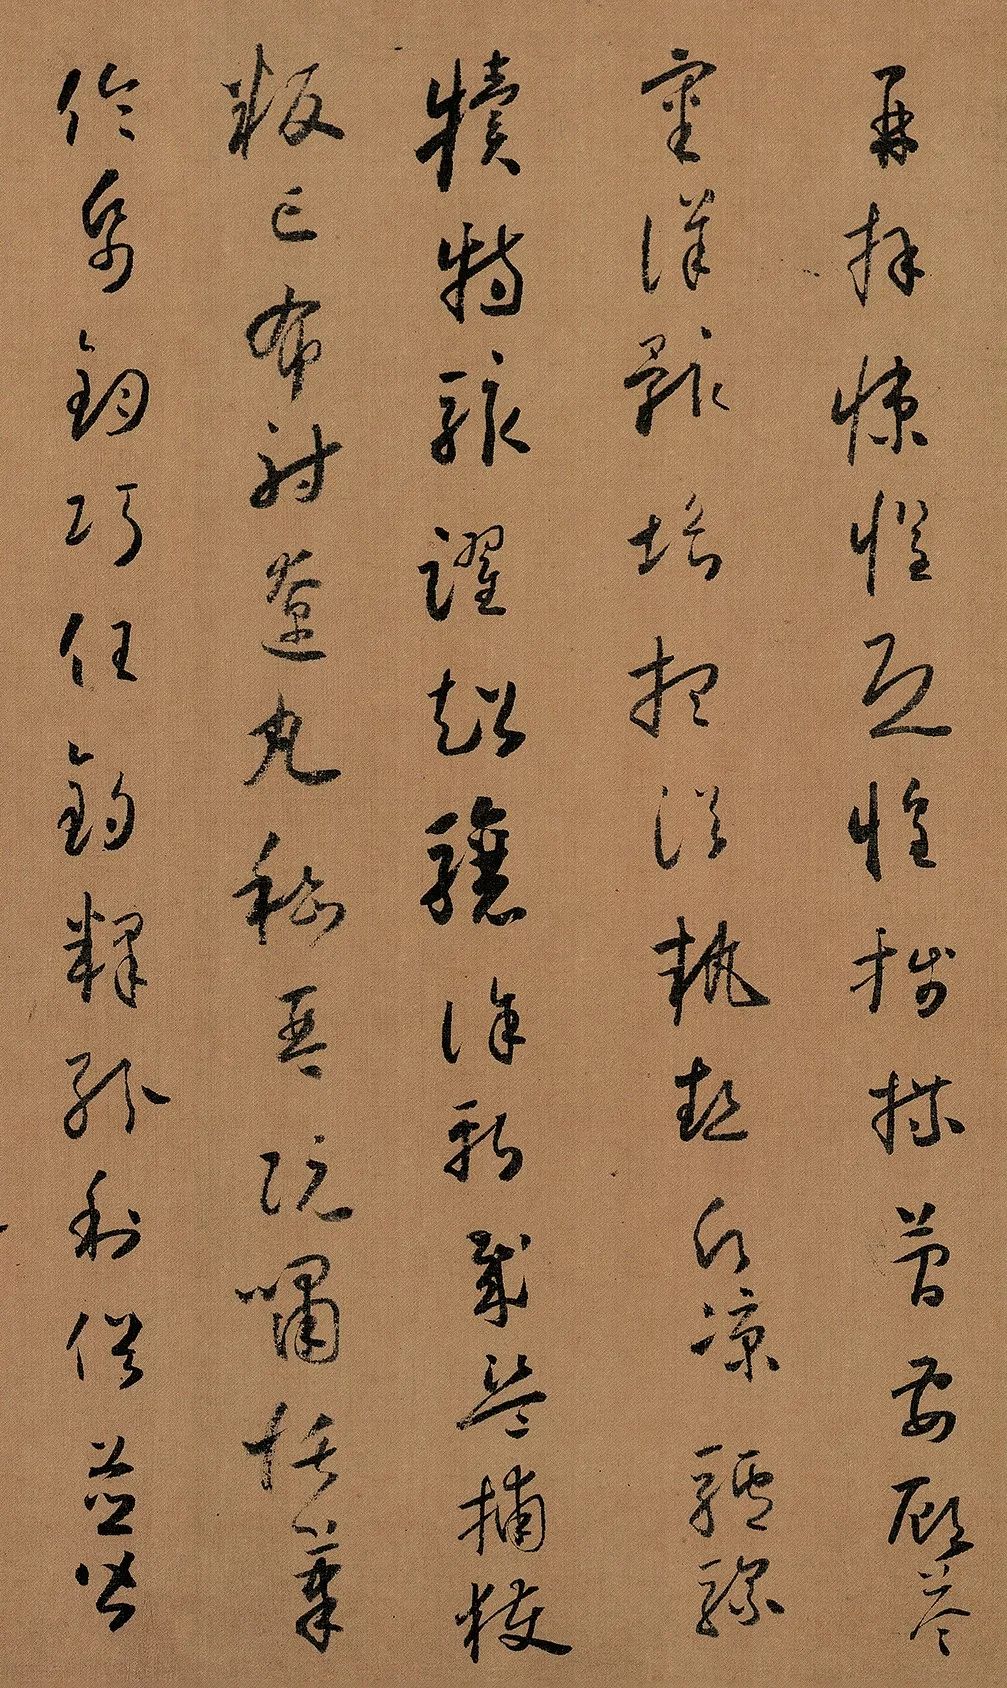 再拜悚懼恐惶牋牒簡要顧答
審詳骸垢想浴執熱願涼驢騾
犢特駭躍超驤誅斬賊盜捕獲
叛亡布射遼丸嵇琴阮嘯恬筆
倫紙鈞巧任釣釋紛利俗並皆